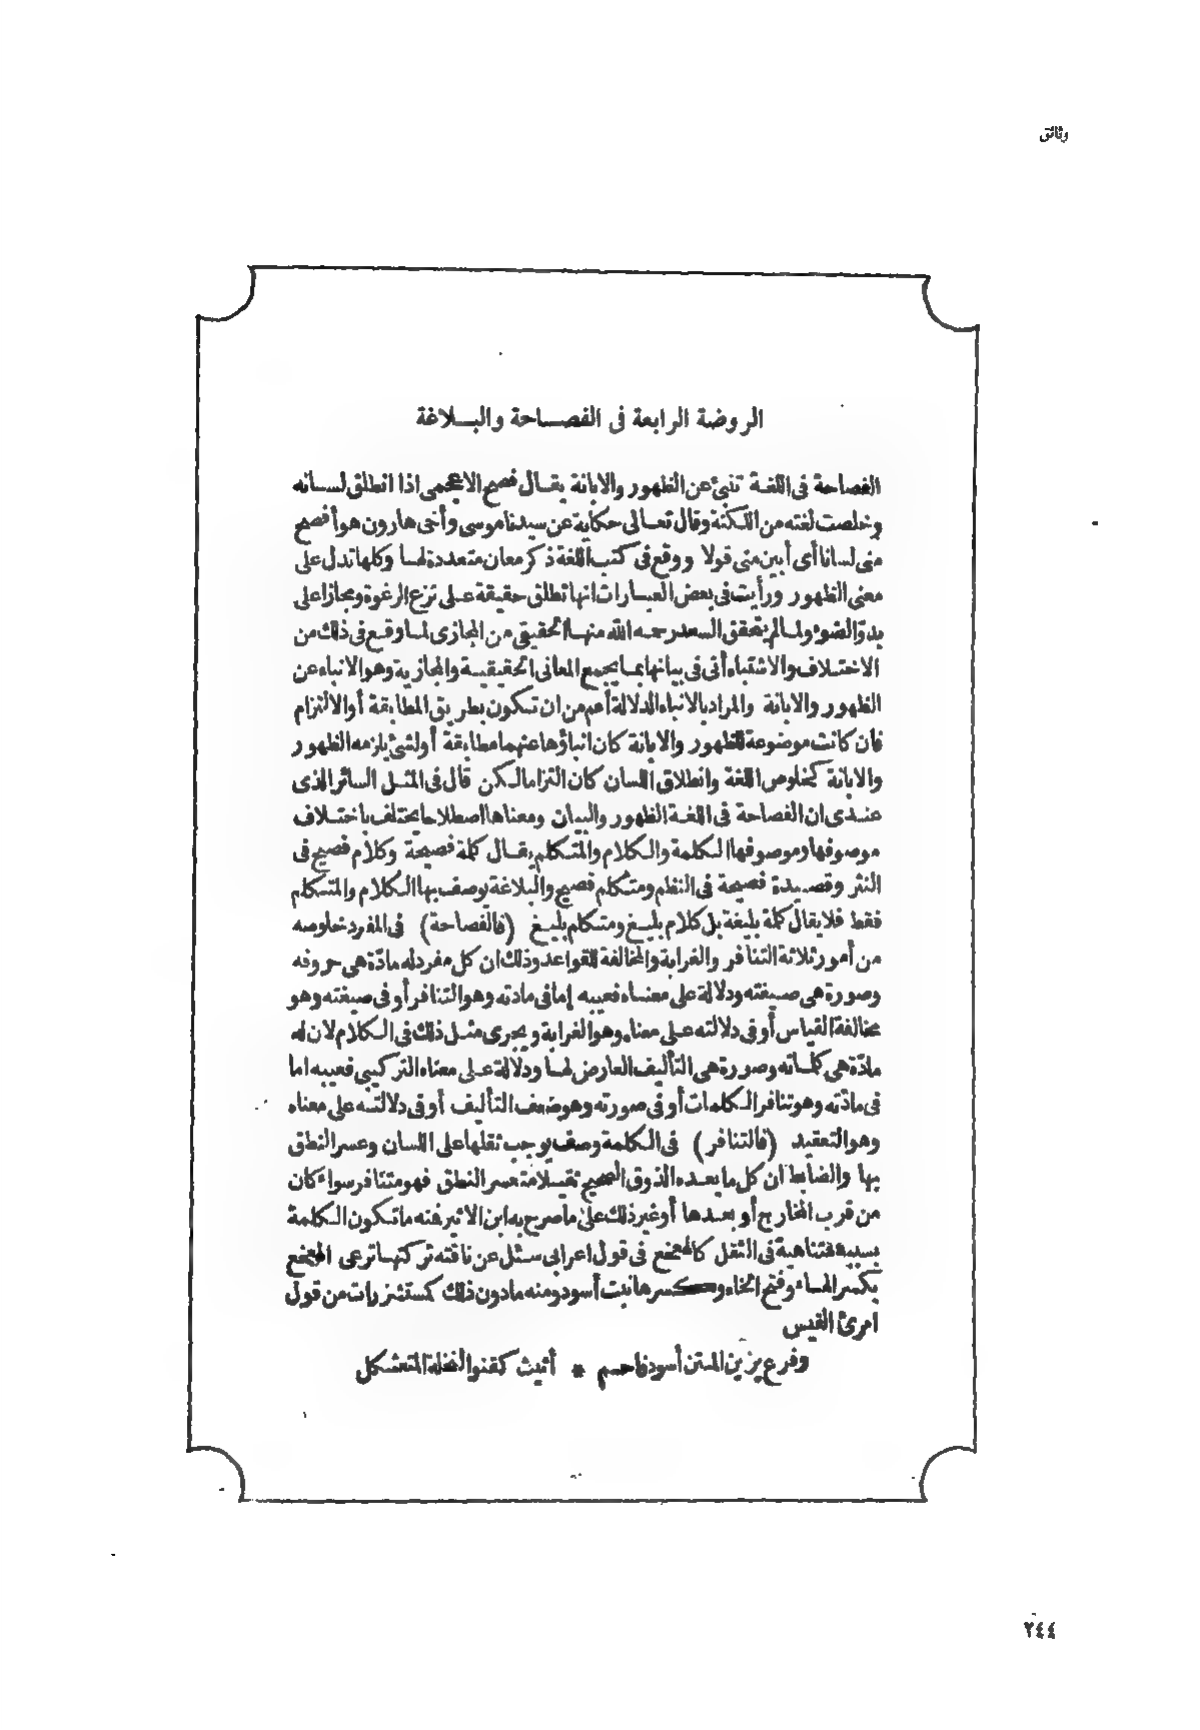 وثائق
الروضة الرابعة فى الفصاحة والبلاغة
الفصاحة فى اللغة تنبئ عن الظهور والابانة يقال فصح الاعجمى اذا انطلق لسانه
وخلصت لغته من اللكنة وقال تعالى حكاية عن سيدنا موسى وأخى هارون هو أفصح
منى لسانا أى أبين منى قولا ووقع فى كتب اللغة ذكر معان متعددة لها وكلها تدل على
معنى الظهور ورأيت فى بعض العبارات انها تطلق حقيقة على نزع الرغوة ومجازا على
بدوّ الضوء ولما لم يتحقق السعد رحمه الله منها الحقيقى من المجازى لما وقع فى ذلك من
الاختلاف والاشتباه أتى فى بيانها بما يجمع المعانى الحقيقية والمجازية وهو الانباء عن
الظهور والابانة والمراد بالانباء الدلالة أعم من ان تكون بطريق المطابقة أو الالتزام
فان كانت موضوعة للظهور والابانة كان انباؤها عنهما مطابقة أو لشئ يلزمه الظهور
والابانة كخلوص اللغة وانطلاق اللسان كان التزاما لكن قال فى المثل السائر الذى
عندى ان الفصاحة فى اللغة الظهور والبيان ومعناها اصطلاحا يختلف باختلاف
موصوفها وموصوفها الكلمة والكلام والمتكلم يقال كلمة فصيحة وكلام فصيح فى
النثر وقصيدة فصيحة فى النظم ومتكلم فصيح والبلاغة يوصف بها الكلام والمتكلم
فقط فلا يقال كلمة بليغة بل كلام بليغ ومتكلم بليغ (فالفصاحة) فى المفرد خلوصه
من أمور ثلاثة التنافر والغرابة والمخالفة للقواعد وذلك ان كل مفرد له مادّة هى حروفه
وصورة هى صيغته ودلالة على معناه فعيبه إما فى مادته وهو التنافر أو فى صيغته وهو
مخالفة القياس أو فى دلالته على معناه وهو الغرابة ويجرى مثل ذلك فى الكلام لان له
مادّة هى كلماته وصورة هى التأليف العارض لها ودلالة على معناه التركيبى فعيبه اما
فى مادّته وهو تنافر الكلمات أو فى صورته وهو ضعف التأليف أو فى دلالته على معناه
وهو التعقيد (فالتنافر) فى الكلمة وصف يوجب ثقلها على اللسان وعسر النطق
بها والضابط ان كل ما يعده الذوق الصحيح ثقيلا متعسر النطق فهو متنافر سواء كان
من قرب المخارج أو بعدها أو غير ذلك على ما صرح به ابن الاثير فنه ما تكون الكلمة
بسببه متناهية فى الثقل كالهعخع فى قول اعرابى سئل عن ناقته تركتها ترعى الهعخع
بكسر الهاء وفتح الخاء وكسرها نبت أسود ومنه ما دون ذلك كمستشزرات من قول
امرئ القيس
وفرع يزين المتن أسود فاحم * أثيث كقنو النخلة المتعثكل
٢٤٤